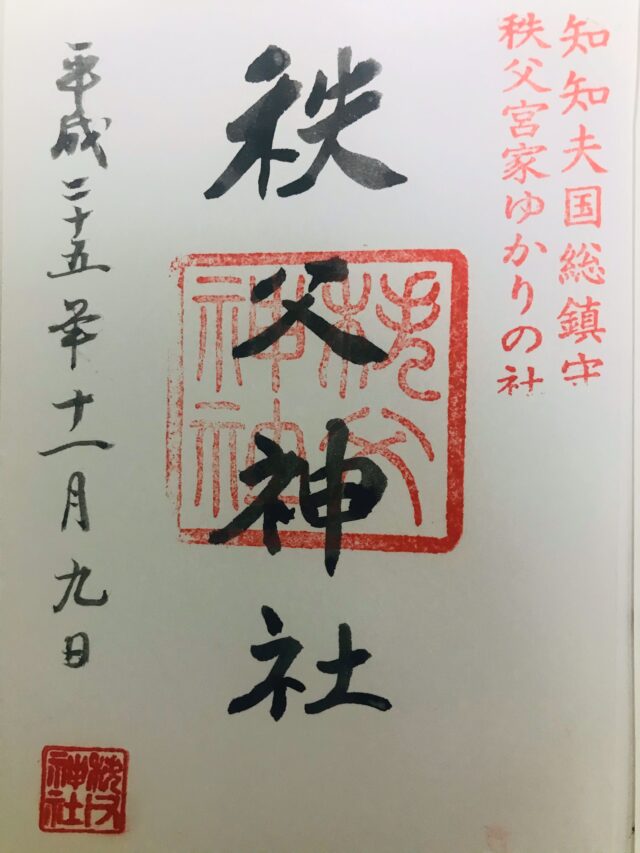 知知夫国総鎮守
秩父宮家ゆかりの社
秩父神社
秩父神社
平成二十五年十一月九日
秩父神社